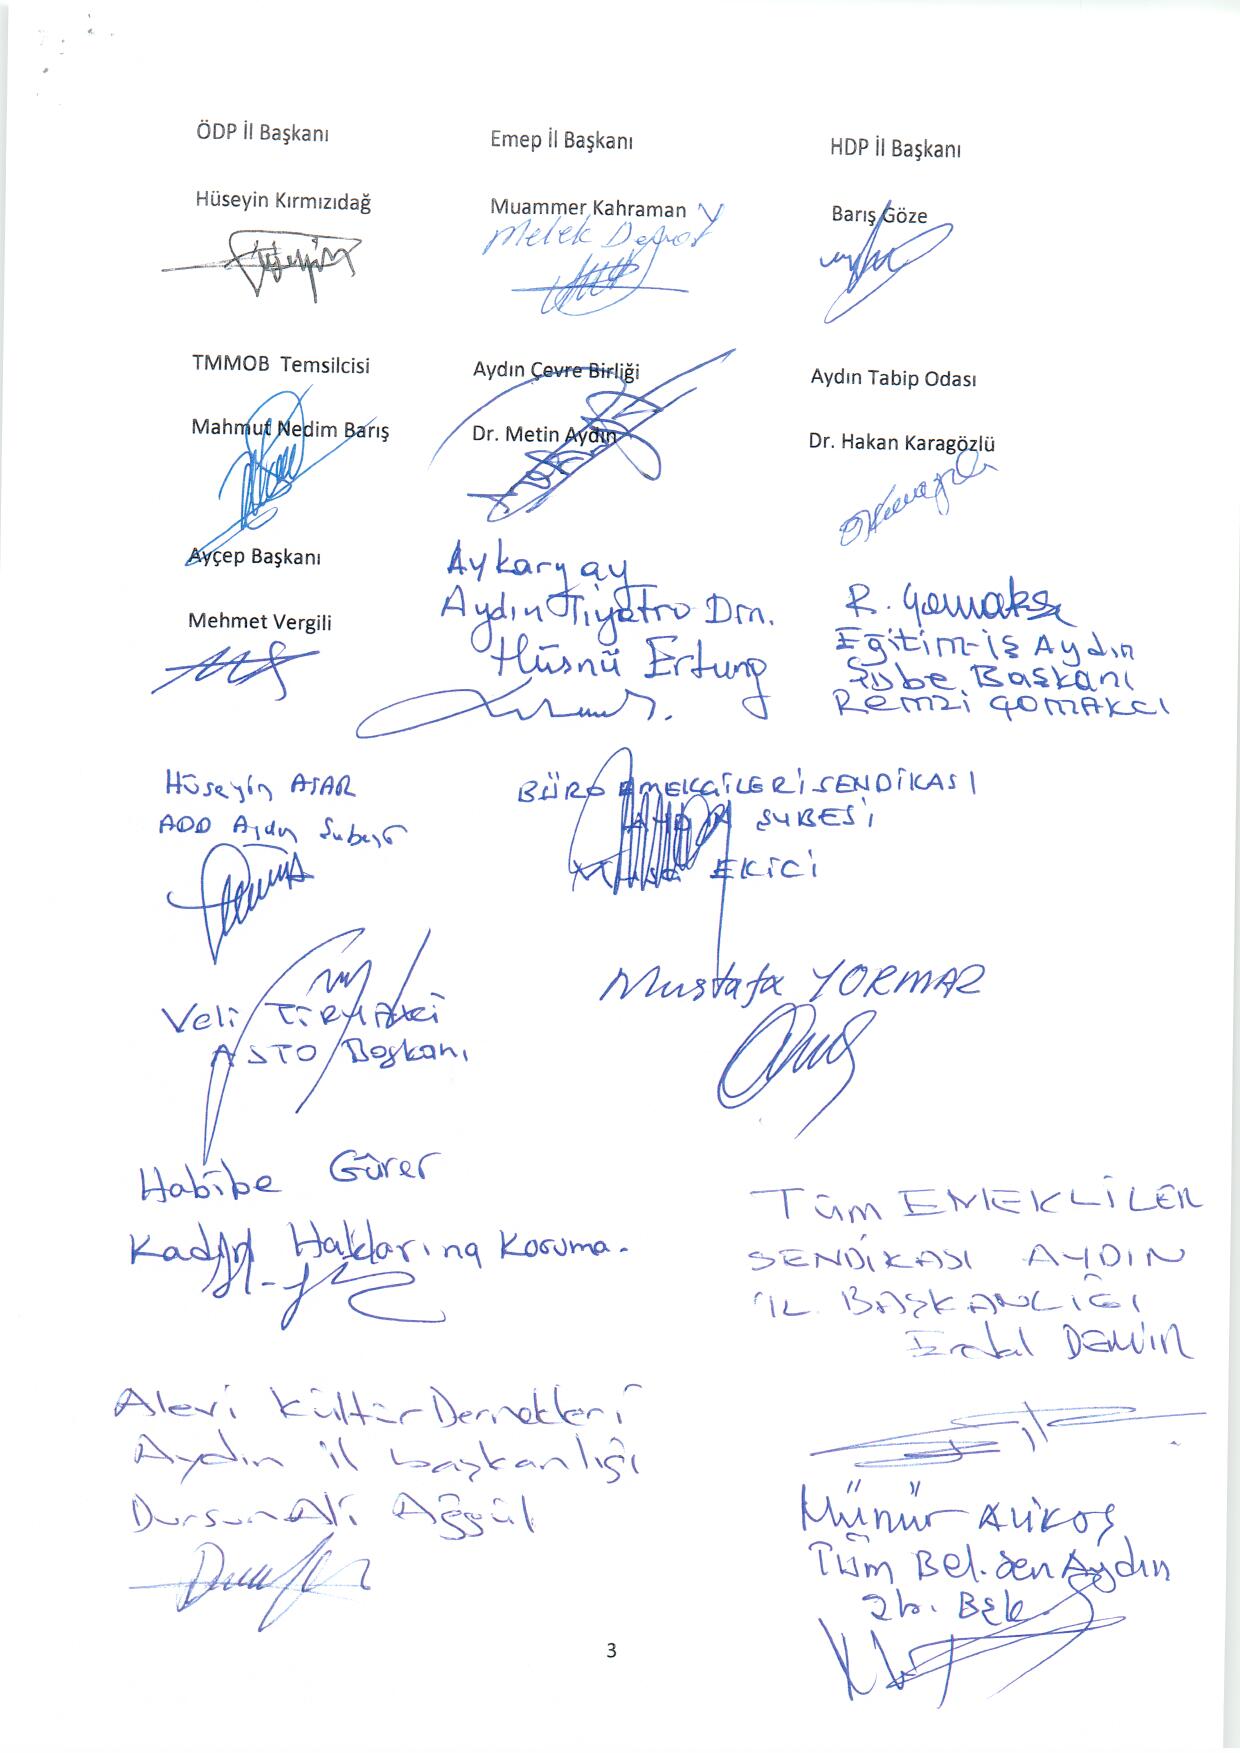 ÖDP İl Başkanı
Emep İl Başkanı
HDP İl Başkanı
Hüseyin Kırmızıdağ
Muammer Kahraman
Barış Göze
Melek
TMMOB Temsilcisi
Aydın Çevre Birliği
Aydın Tabip Odası
Mahmut Nedim Barış
Dr. Metin Aydın
Dr. Hakan Karagözlü
Ayçep Başkanı
Mehmet Vergili
Aykaryay
Aydın Tiyatro Drn.
Hüsnü Ertung
Eğitim-iş Aydın
Şube Başkanı
Remzi ÇOMAKCI
Hüseyin
ADD Aydın Şubesi
BÜRO EMEKÇİLERİ SENDİKASI
AYDIN ŞUBESİ
EKİCİ
Veli TİRYAKİ
ASTO Başkanı
Mustafa YORMAZ
Habibe Gürer
Kadın Haklarına Koruma.
Tüm EMEKLİLER
SENDİKASI AYDIN
İL BAŞKANLIĞI
Erdal DEMİR
Alevi Kültür Dernekleri
Aydın il başkanlığı
Dursun Ali Aggül
Münür Alikoş
Tüm Bel. Sen Aydın
Şb. Bşk.
3